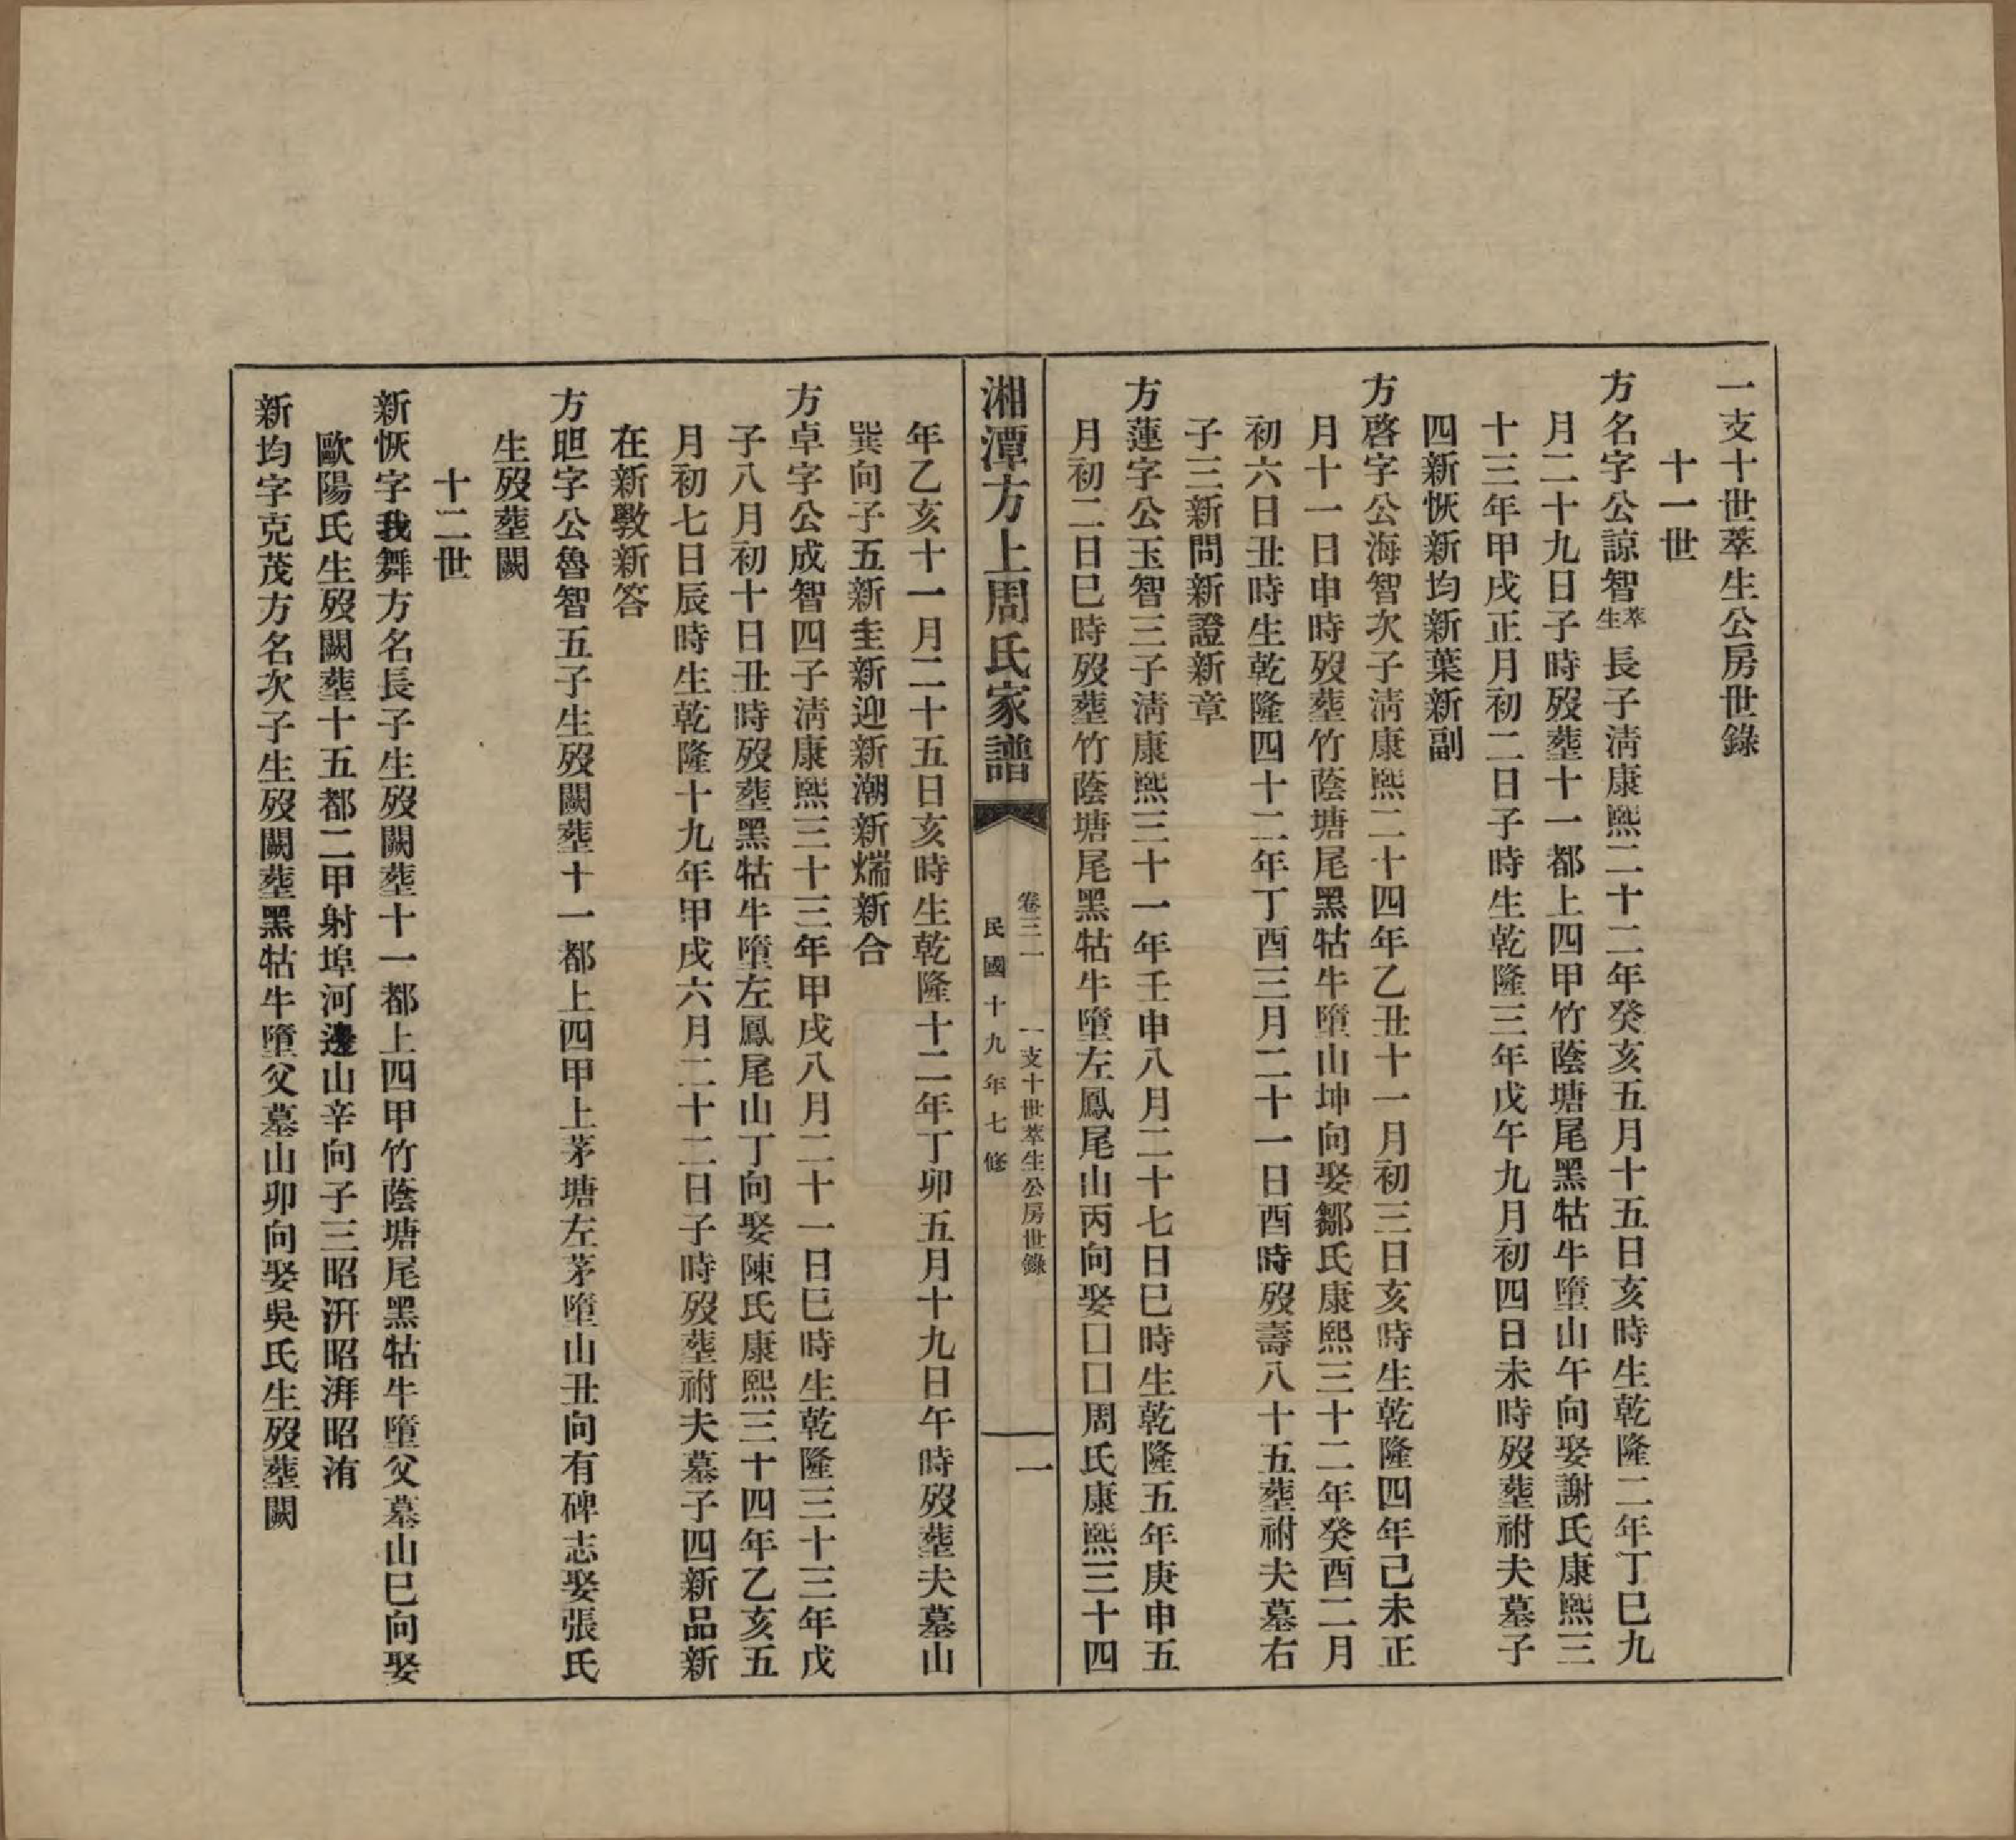 一支十世萃生公房世錄
十一世
方名字公諒智萃生長子淸康熙二十二年癸亥五月十五日亥時生乾隆二年丁巳九
月二十九日子時歿葬十一都上四甲竹蔭塘尾黑牯牛墮山午向娶謝氏康熙三
十三年甲戌正月初二日子時生乾隆三年戊午九月初四日未時歿葬祔夫墓子
四新恢新均新葉新副
方啓字公海智次子淸康熙二十四年乙丑十一月初三日亥時生乾隆四年己未正
月十一日申時歿葬竹蔭塘尾黑牯牛墮山坤向娶鄒氏康熙三十二年癸酉二月
初六日丑時生乾隆四十二年丁酉三月二十一日酉時歿壽八十五葬祔夫墓右
子三新問新證新章
方蓮字公玉智三子淸康熙三十一年壬申八月二十七日巳時生乾隆五年庚申五
月初二日巳時歿葬竹蔭塘尾黑牯牛墮左鳳尾山丙向娶囗囗周氏康熙三十四
湘潭方上周氏家譜
卷三一 一支十世萃生公房世錄 一
民國十九年七修
年乙亥十一月二十五日亥時生乾隆十二年丁卯五月十九日午時歿葬夫墓山
巽向子五新圭新迎新潮新煓新合
方卓字公成智四子淸康熙三十三年甲戌八月二十一日巳時生乾隆三十三年戊
子八月初十日丑時歿葬黑牯牛墮左鳳尾山丁向娶陳氏康熙三十四年乙亥五
月初七日辰時生乾隆十九年甲戌六月二十二日子時歿葬祔夫墓子四新品新
在新斅新答
方胆字公魯智五子生歿闕葬十一都上四甲上茅塘左茅墮山丑向有碑志娶張氏
生歿葬闕
十二世
新恢字我舞方名長子生歿闕葬十一都上四甲竹蔭塘尾黑牯牛墮父墓山巳向娶
歐陽氏生歿闕葬十五都二甲射埠河邊山辛向子三昭汧昭湃昭洧
新均字克茂方名次子生歿闕葬黑牯牛墮父墓山卯向娶吳氏生歿葬闕